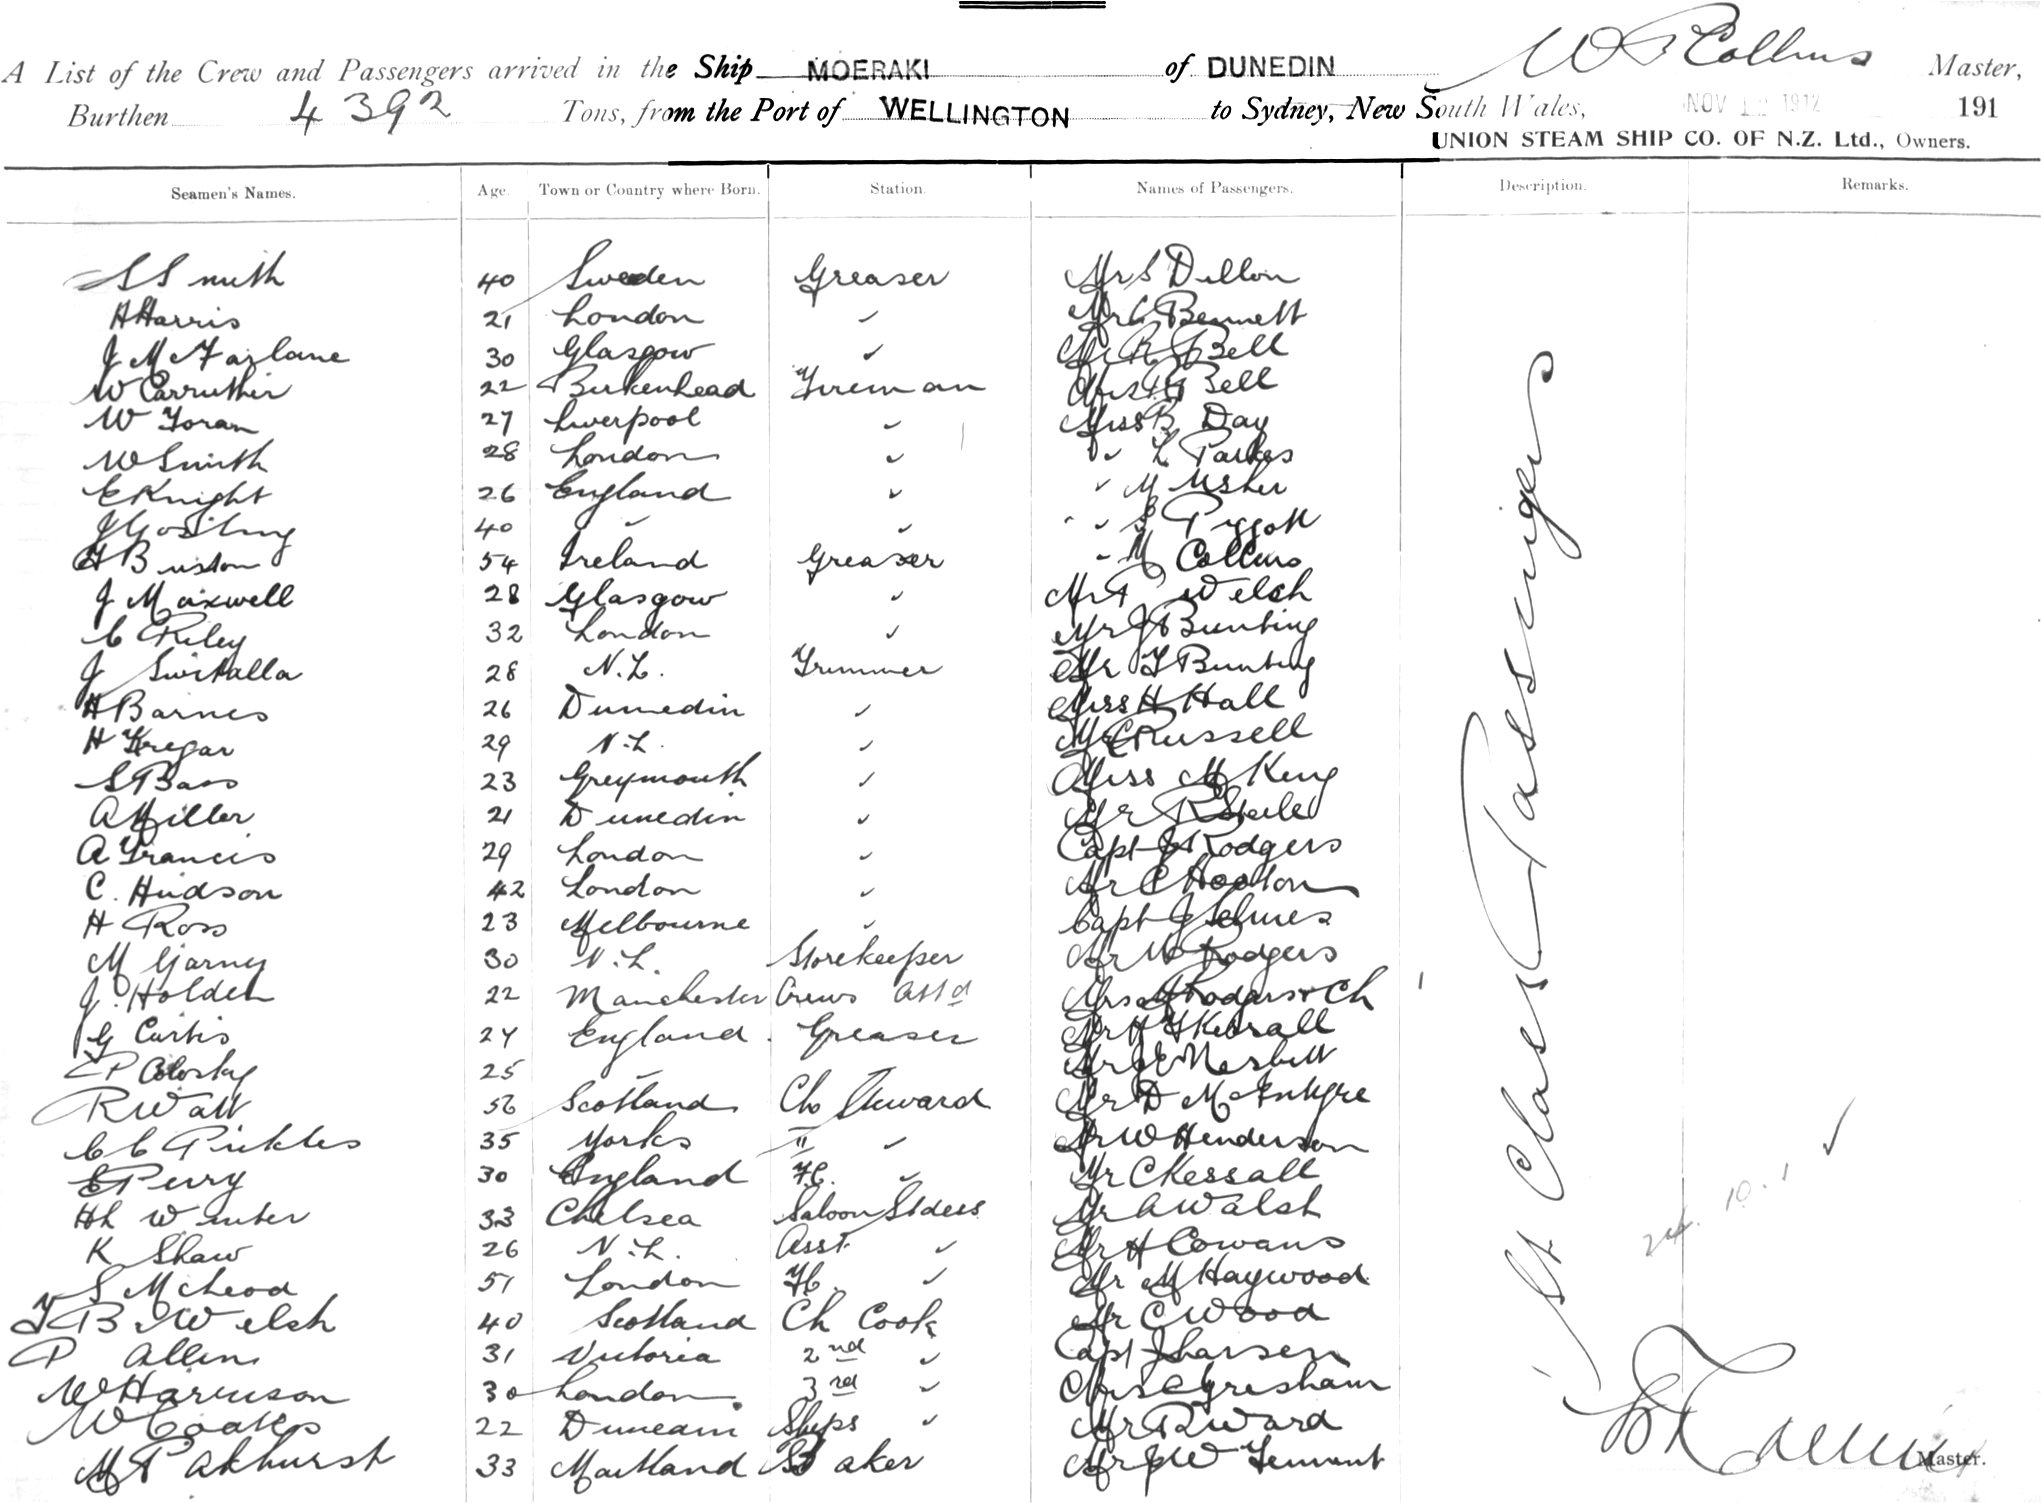 A List of the Crew and Passengers arrived in the Ship MOERAKI of DUNEDIN W Collins Master,
Burthen 4392 Tons, from the Port of WELLINGTON to Sydney, New South Wales, NOV 12 1912 191
UNION STEAM SHIP CO. OF N.Z. Ltd., Owners.
Seamen's Names. Age. Town or Country where Born. Station. Names of Passengers. Description. Remarks.
S Smith 40 Sweden Greaser Mr S Dillon
H Harris 21 London ✓ Mr C Bennett
J McFarlane 30 Glasgow ✓ Mr R Bell
W Carruther 22 Birkenhead Fireman Mrs Bell
W Foran 27 Liverpool ✓ Miss B Day
W Smith 28 London ✓ ✓ L Parkes
E Knight 26 England ✓ ✓ M Usher
J Gosling 40 ✓ ✓ ✓ Piggott
H Buston 54 Ireland Greaser M Collins
J Maxwell 28 Glasgow ✓ Mr P Welch
C Riley 32 London ✓ Mr J Bunting
J Switalla 28 N.Z. Trimmer Mr F Bunting
H Barnes 26 Dunedin ✓ Miss H Hall
H Kregar 29 N.Z. ✓ Mr C Russell
S Bass 23 Greymouth ✓ Miss M King
A Miller 21 Dunedin ✓ Mr R Steele
A Francis 29 London ✓ Capt J Rodgers
C. Hudson 42 London ✓ Mr C Hooton
H Ross 23 Melbourne ✓ Capt J
M Garney 30 N.Z. Storekeeper Mr W Rodgers
J. Holden 22 Manchester Crews Attd Mrs J Rodgers & Ch
G Curtis 24 England Greaser Mr H F Kessall
P 25 Mr J E Nesbitt
R Watt 56 Scotland Ch Steward Mr D McIntyre
C C Pickles 35 Yorks II ✓ Mr W Henderson
E Perry 30 England F.C. ✓ Mr C Kessall
H L Winter 33 Chelsea Saloon Stdess Mr A Walsh
K Shaw 26 N.Z. Asst. ✓ Mr H Cowans
S McLeod 51 London F.C. ✓ Mr M Haywood
T B W Welsh 40 Scotland Ch Cook Mr C Wood
P Allen 31 Victoria 2nd ✓ Capt J Larsen
W Harrison 30 London 3rd ✓ Mrs C Gresham
W Coates 22 Dunedin Ships ✓ Mr R Ward
M Pakhurst 33 Maitland Baker Mr J W Tennent
1st Class Passengers
24. 10. 1 ✓
Collins
Master.